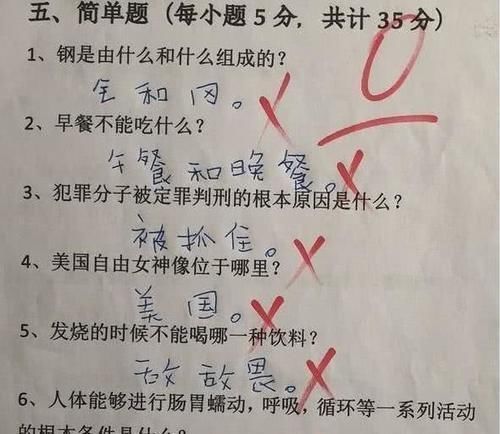 五、简单题（每小题 5 分，共计 35 分）
0
1、钢是由什么和什么组成的？
金和冈。
2、早餐不能吃什么？
午餐和晚餐。
3、犯罪分子被定罪判刑的根本原因是什么？
被抓住。
4、美国自由女神像位于哪里？
美国。
5、发烧的时候不能喝哪一种饮料？
敌敌畏。
6、人体能够进行肠胃蠕动，呼吸，循环等一系列活动
的根本条件是什么？